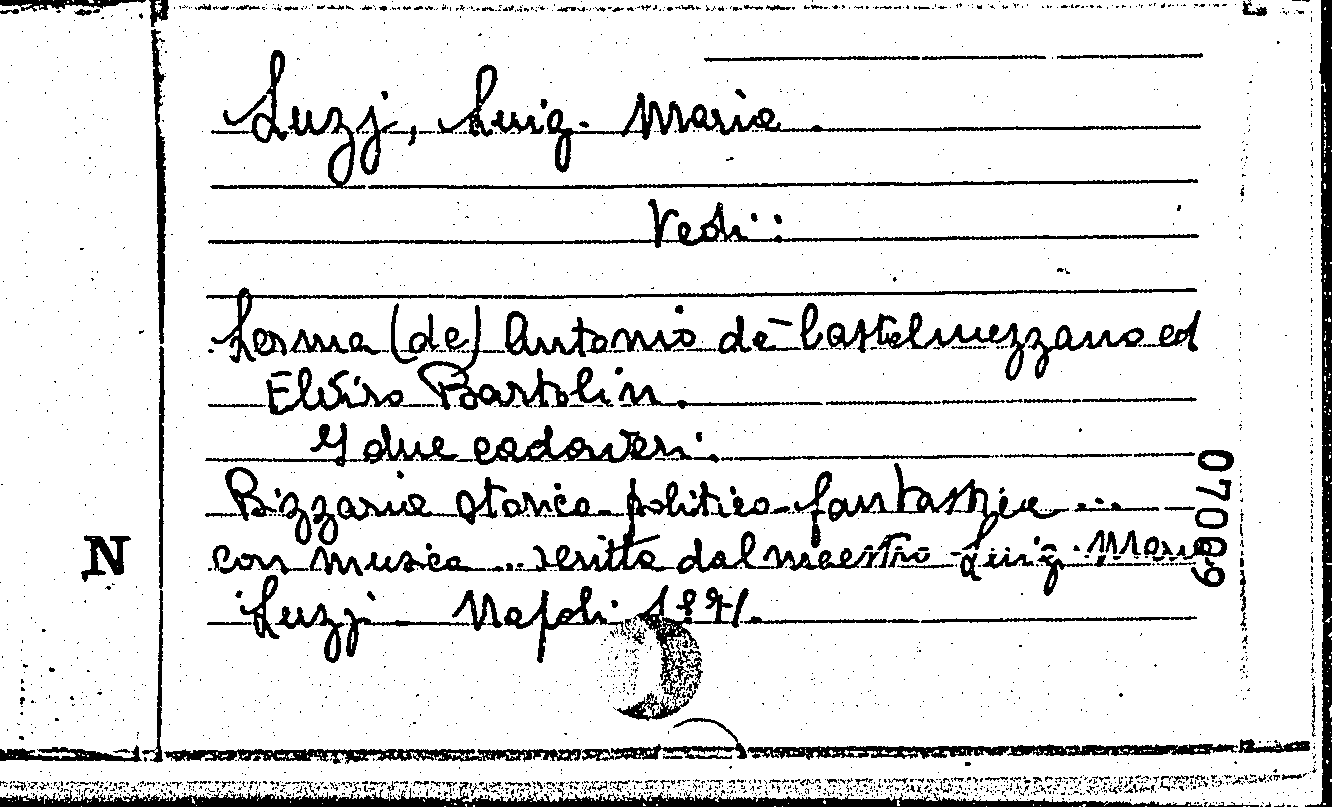 Luzj, Luig. Maria.
Vedi:
Lerma (de) Antonio de Castelmezzano ed
Elviro Bartolin.
I due cadaveri.
Bizzaria storica-politico-fantastica ...
con musica ... scritta dal maestro Luig. Maria
Luzj. Napoli 1871.
N
07009